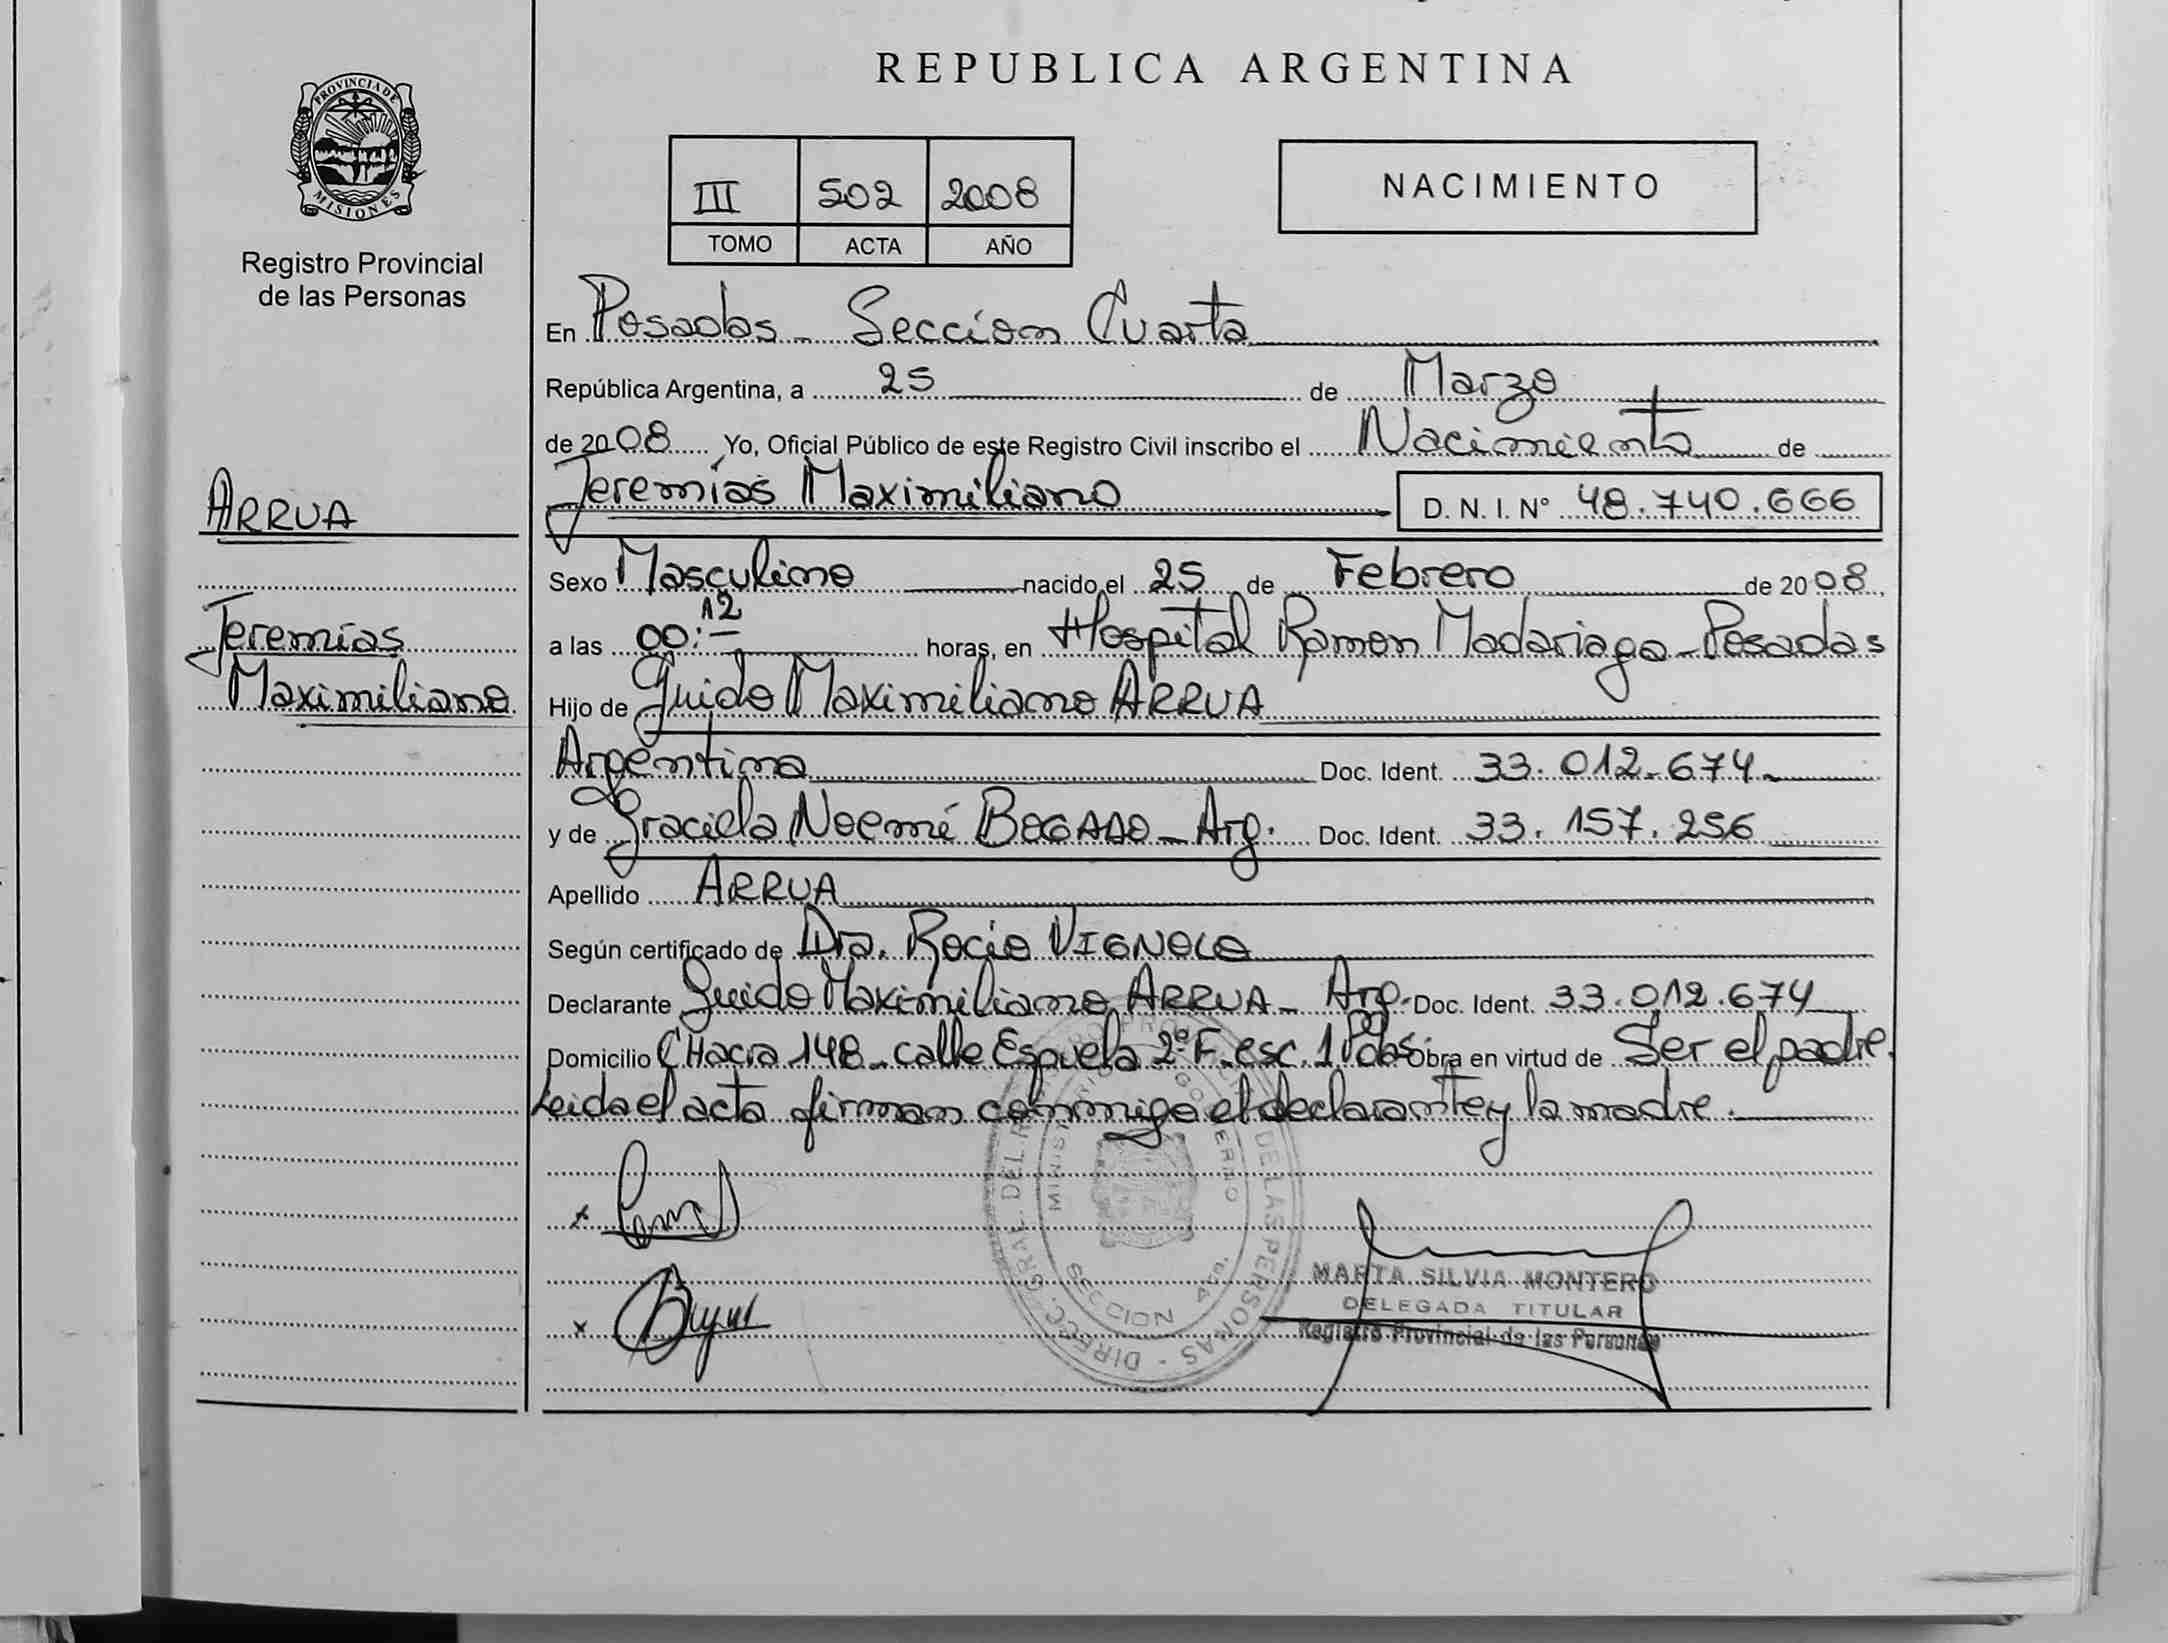 REPUBLICA ARGENTINA
PROVINCIA DE MISIONES
Registro Provincial
de las Personas
III 502 2008
TOMO ACTA AÑO
NACIMIENTO
En Posadas - Seccion Cuarta
República Argentina, a 25 de Marzo
de 2008 Yo, Oficial Público de este Registro Civil inscribo el Nacimiento de
Jeremías Maximiliano D. N. I. N° 48.740.666
ARRUA
Jeremías
Maximiliano
Sexo Masculino nacido el 25 de Febrero de 2008
a las 00:12 horas, en Hospital Ramon Madariaga - Posadas
Hijo de Guido Maximiliano ARRUA
Argentina Doc. Ident. 33.012.674
y de Graciela Noemí BOGADO - Arg. Doc. Ident. 33.157.256
Apellido ARRUA
Según certificado de Dra. Rocio VIGNOLO
Declarante Guido Maximiliano ARRUA - Arg. Doc. Ident. 33.012.674
Domicilio CHacra 148 - calle Espuela 2º F. esc. 1 Pdas. Obra en virtud de Ser el padre.
Leida el acta firman conmigo el declarante y la madre.
MINISTERIO GOBIERNO
SECCION 4ta.
MARTA SILVIA MONTERO
DELEGADA TITULAR
Registro Provincial de las Personas